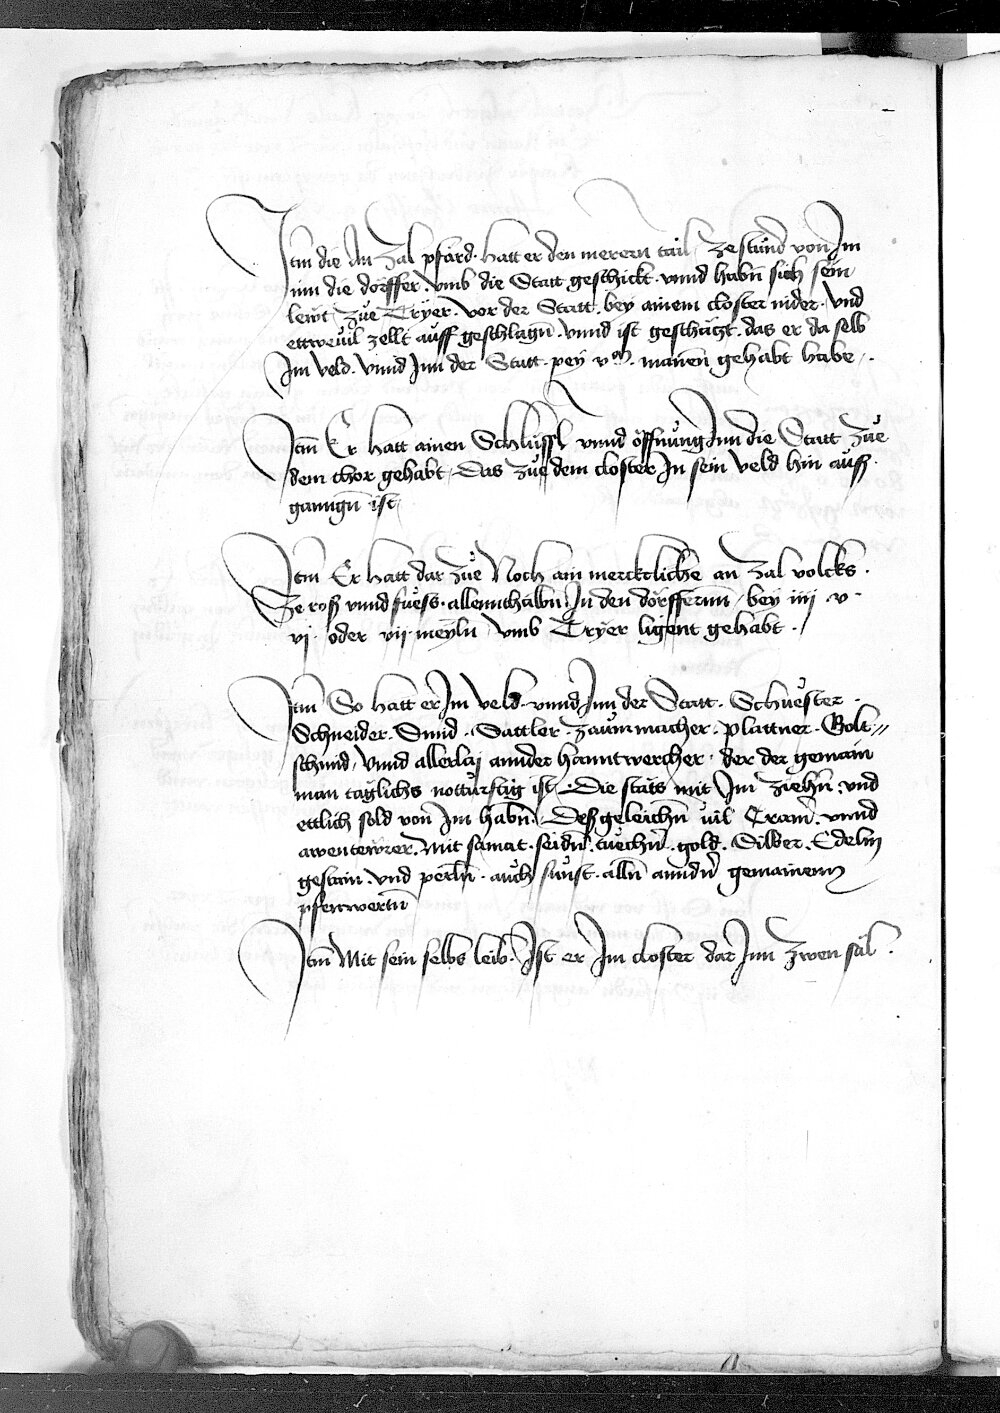 Itm die An zal pfärd. hatt er den merern tail / ze stund von Im
Inn die dörffer. vmb die Statt geschickt. vnnd habn̄ sich sein
lewt / zue Tryer. vor der Statt. bey ainem closter nider. vnd
ettweuil zellt auff geschlagn̄. vnnd ist geschätzt. das er da selb
Im veld. vnnd Inn der Statt. pey vᵐ. mannen gehabt habe.
Itm̄ Er hatt ainen Schlüssl vnnd öffnung Inn die Statt zue
dem thor gehabt / Das zue dem closter In sein veld hin auß.
ganngn̄ ist /
Itm̄ Er hatt dar zue Noch ain mercktliche an zal volcks.
Ze roß vnnd fuess. allennthalbn̄ In den dörffernn / bey iiij. v.
vj. oder vij meyln / vmb Tryer ligent gehabt.
Itm̄ So hatt er Im veld. vnnd Inn der Statt. Schuester.
Schneider. Smid. Sattler. zaummacher. plattner. Golt=
schmid / vnnd allerlaÿ annder hanntwercher. der der gemain
man täglichs notturftig ist /. Die stäts mit Im ziehn̄. vnd
ettlich sold von Im habn̄. Deßgeleichn̄ vil Cramer. vnnd
awentewrer. Mit samat. seidn̄. tuechn̄. gold. Silber. Edelm
gestain. vnd perln̄. auch sunst. alln̄ anndn̄ gemainenn
pfenwertn̄
Itm̄ Mit sein selbs leib. Ist er Im closter dar Inn zwen säl.